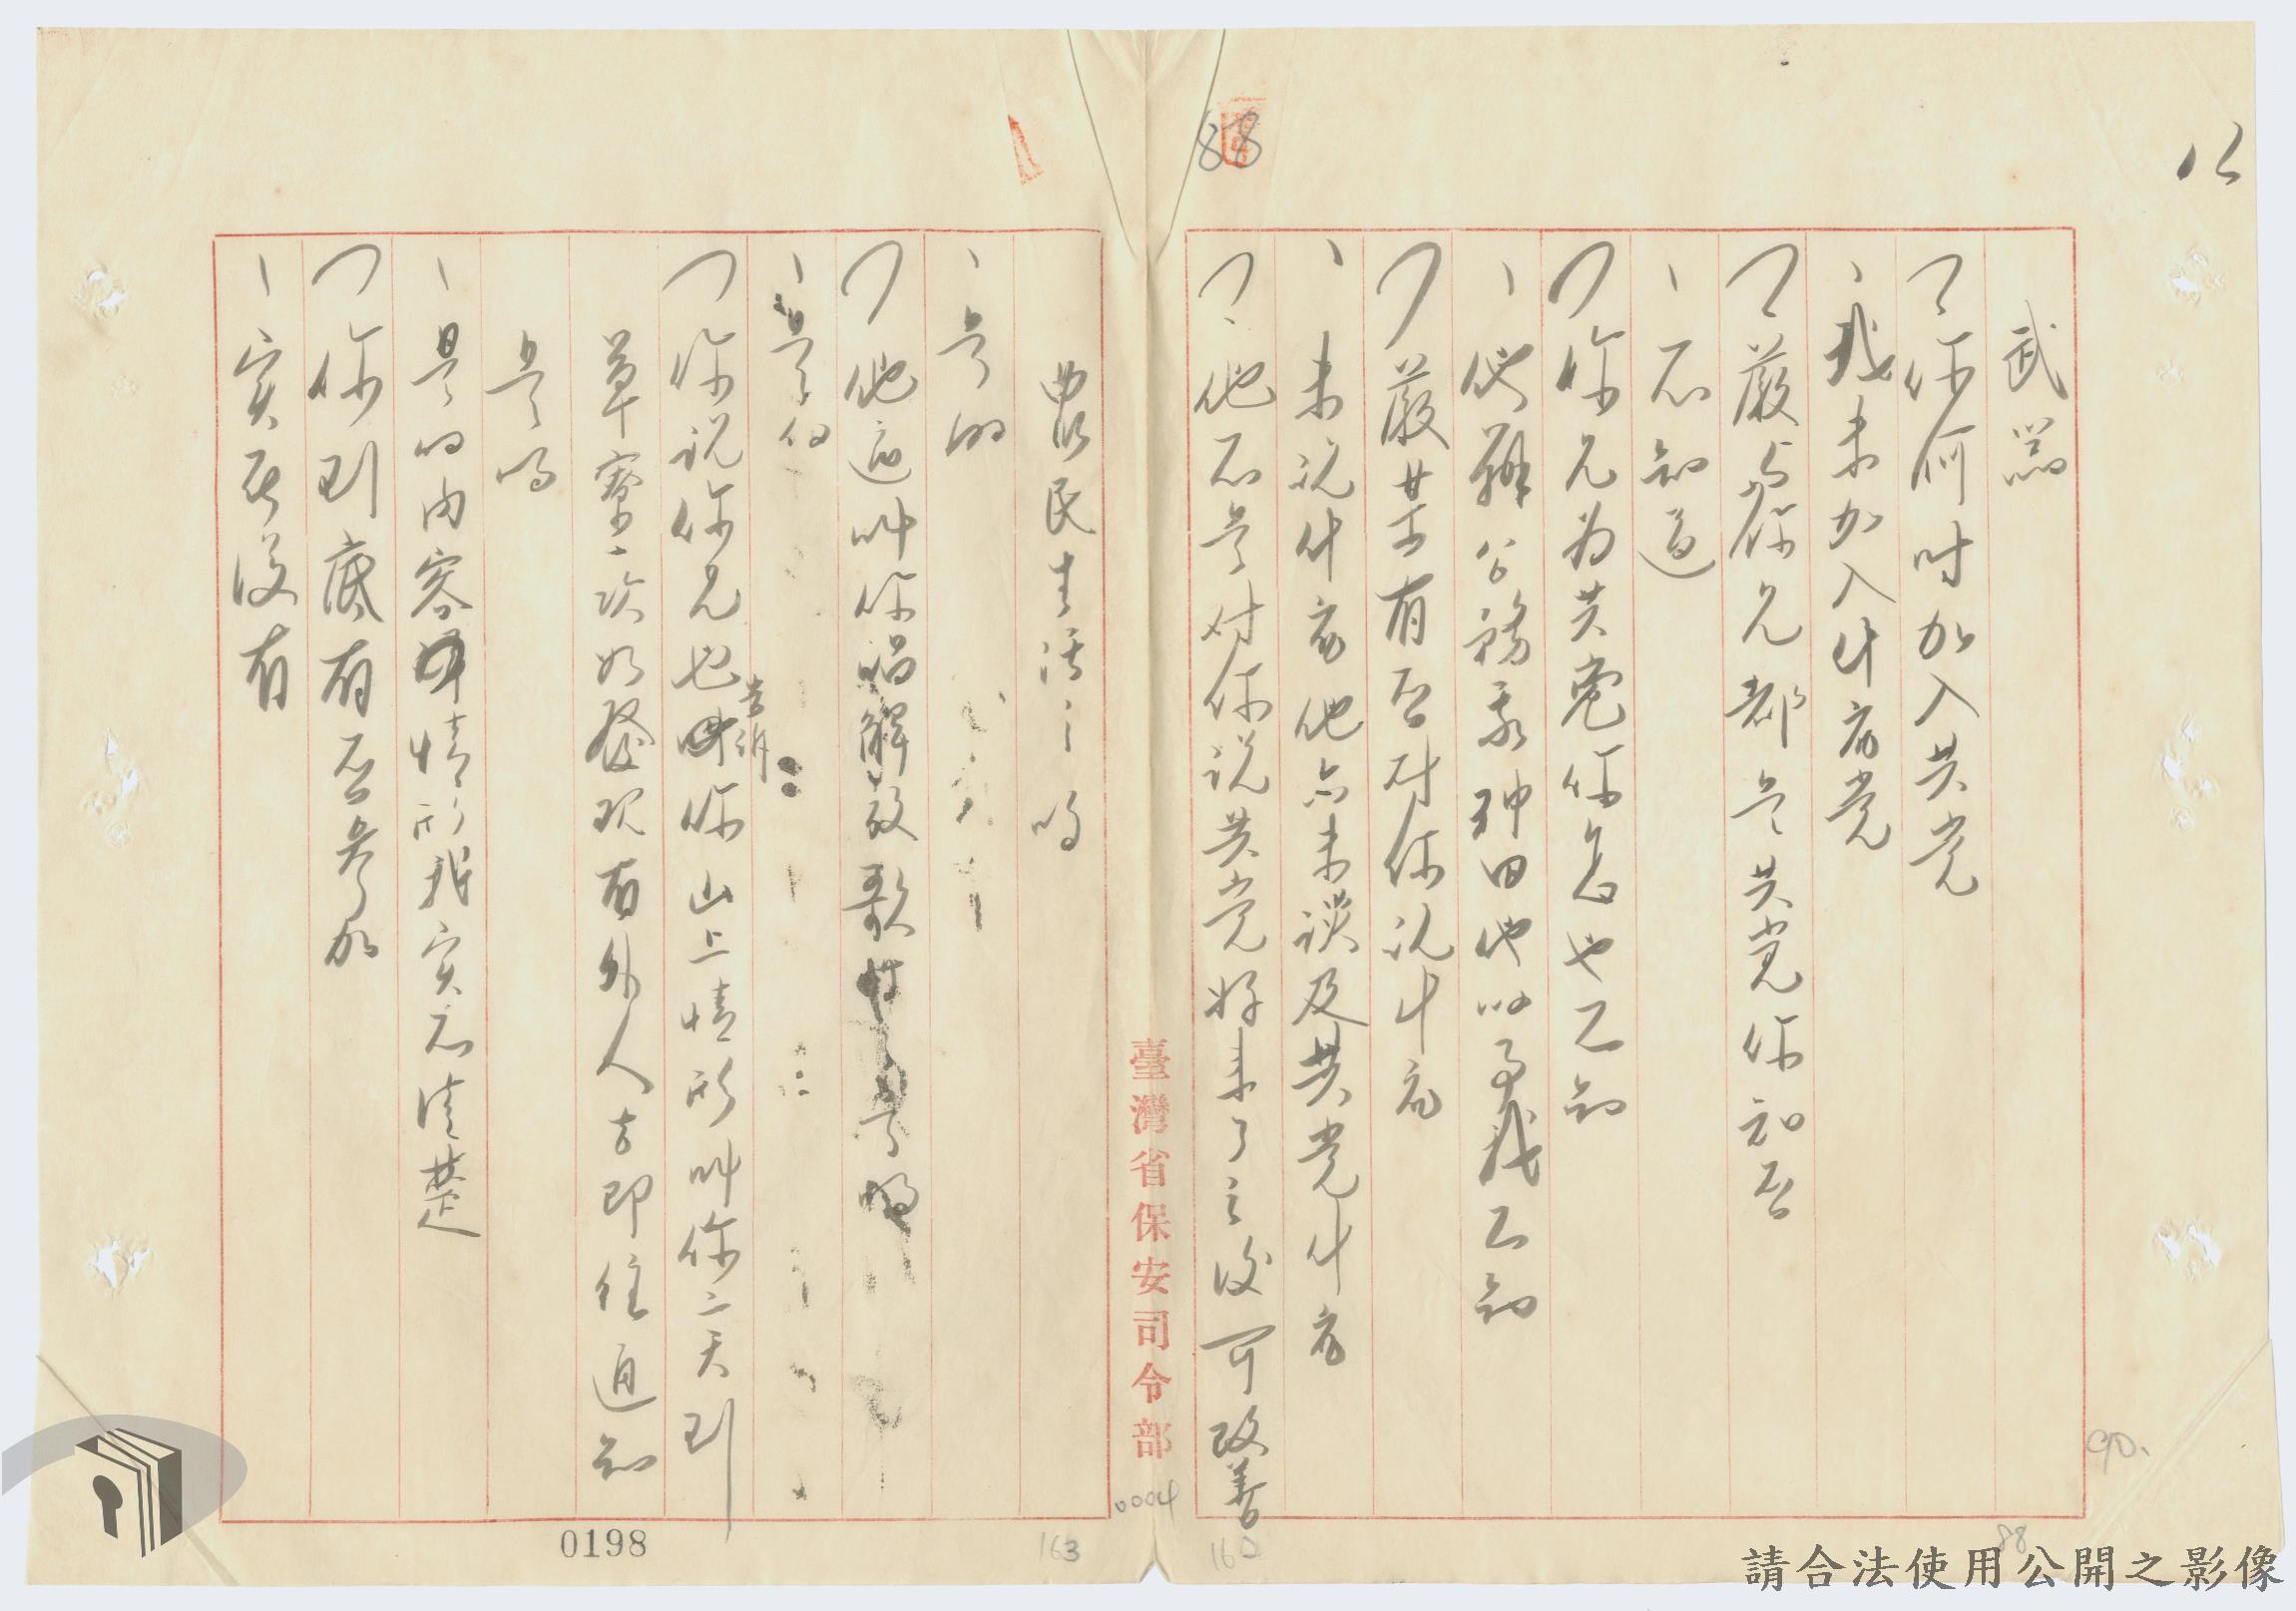 武器
你何时加入共党
我未加入什広党
嚴与你兄都是共党你知否
不知道
你兄为共党你怎也不知
他辦公務我种田他的事我不知
嚴某有否对你说什広
未说什広他亦未談及共党什広
他不是对你说共党将来了之後可改善
農民生活之吗
是的
他迫叫你唱解放歌是嗎
是的
你说你兄也告诉你山上情形叫你二天到
草寮一次如發現有外人去即往通知
是吗
是的内容情形我实不清楚
你到底有否参加
实在没有
臺灣省保安司令部
0198
163
0004
88
90.
88
請合法使用公開之影像